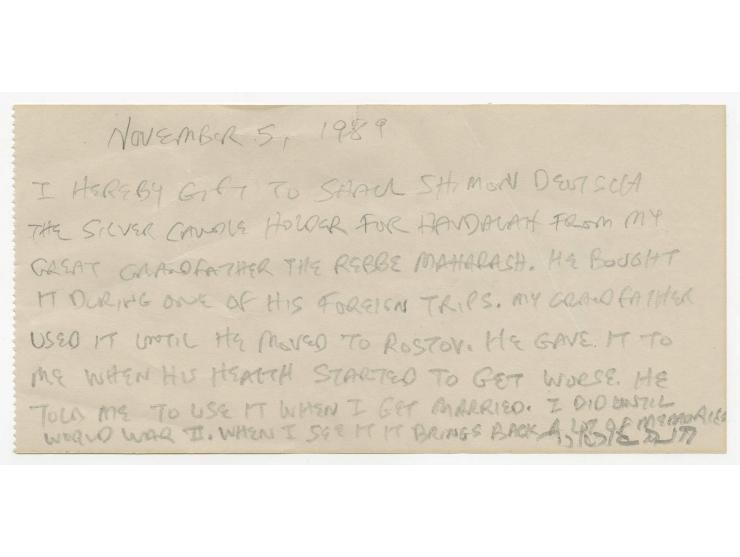 NOVEMBER 5, 1989
I HEREBY GIFT TO SHAUL SHIMON DEUTSCH
THE SILVER CANDLE HOLDER FOR HAVDALAH FROM MY
GREAT GRANDFATHER THE REBBE MAHARASH. HE BOUGHT
IT DURING ONE OF HIS FOREIGN TRIPS. MY GRANDFATHER
USED IT UNTIL HE MOVED TO ROSTOV. HE GAVE IT TO
ME WHEN HIS HEALTH STARTED TO GET WORSE. HE
TOLD ME TO USE IT WHEN I GET MARRIED. I DID UNTIL
WORLD WAR II. WHEN I SEE IT IT BRINGS BACK A LOT OF MEMORIES